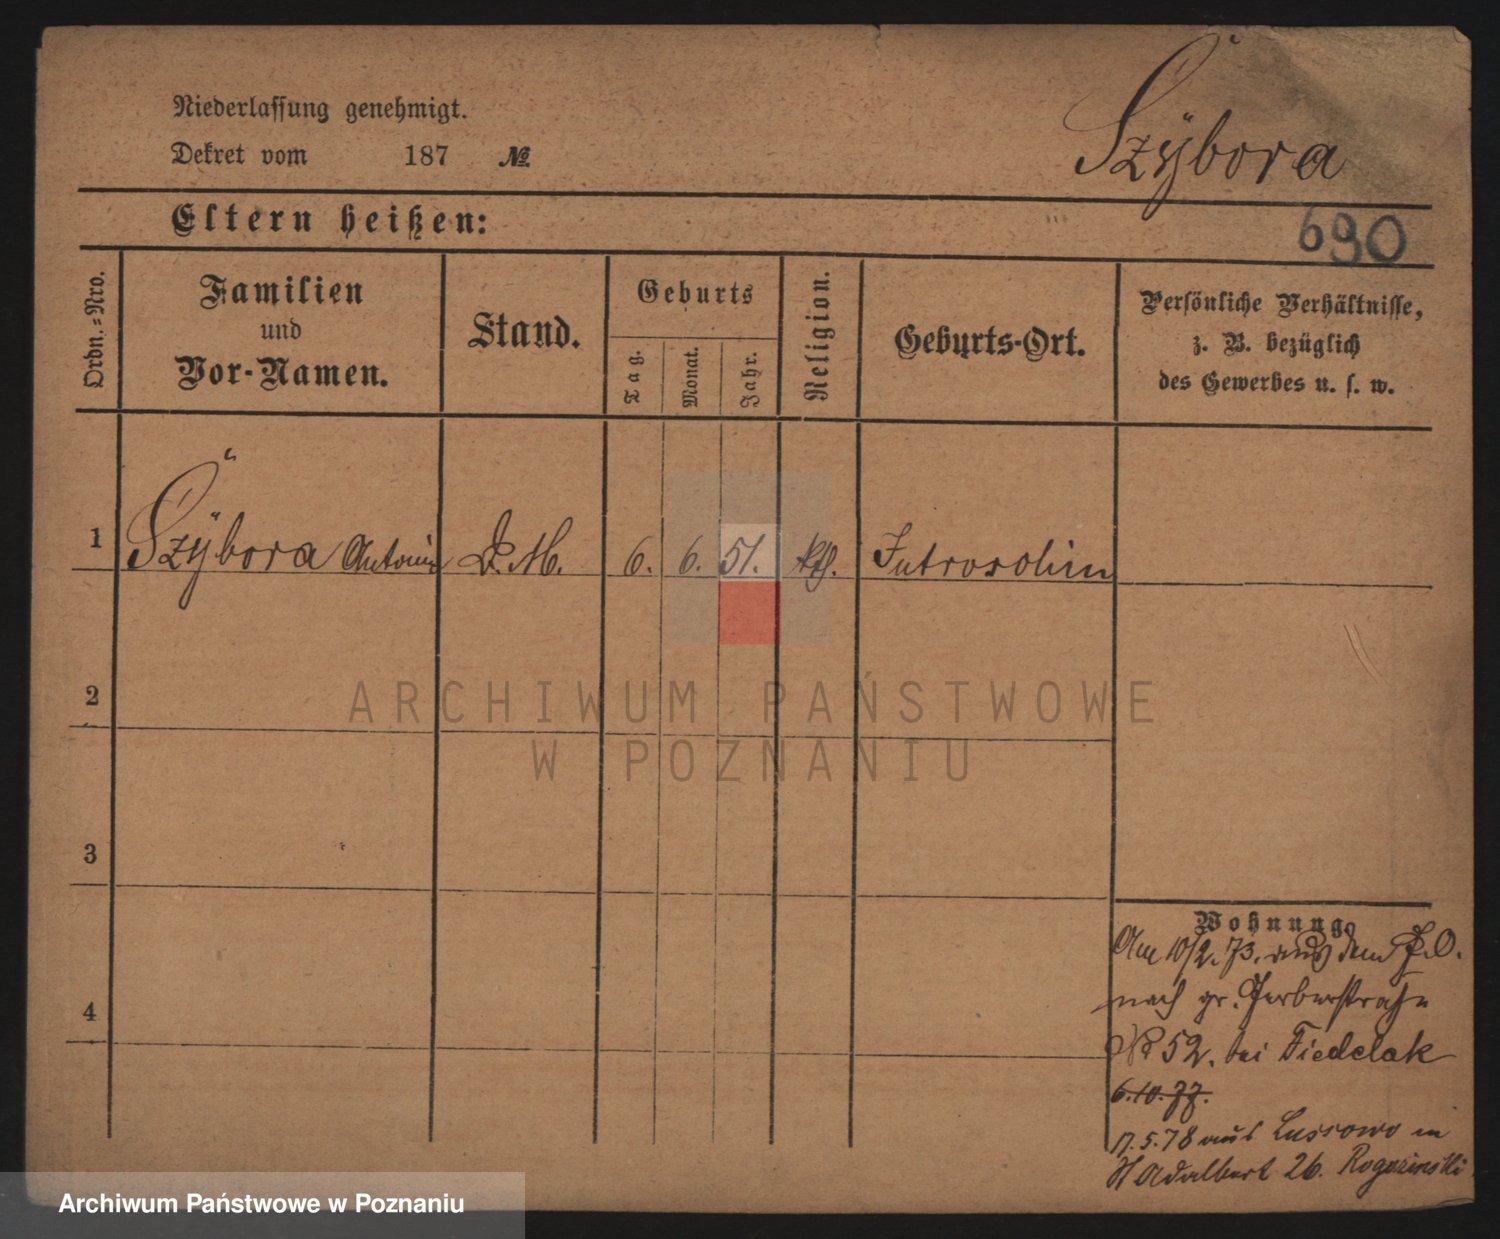 Szÿbora
Niederlassung genehmigt.
Dekret vom 187 №
Eltern heißen:
690
Ordn.=Nro.
Familien
und
Vor-Namen.
Stand.
Geburts
Tag.
Monat.
Jahr.
Religion.
Geburts-Ort.
Persönliche Verhältnisse,
z. B. bezüglich
des Gewerbes u. s. w.
1 Szÿbora Antonie D. M. 6. 6. 51. kth. Jutroschin
2
3
4
Wohnung.
Am 10/2. 73. aus dem P. O.
nach gr. Gerberstraße
No 52. bei Fiedelak
6.10.77.
17.5.78 aus Lussowo in
St Adalbert 26. Rogozinski
ARCHIWUM PAŃSTWOWE
W POZNANIU
Archiwum Państwowe w Poznaniu